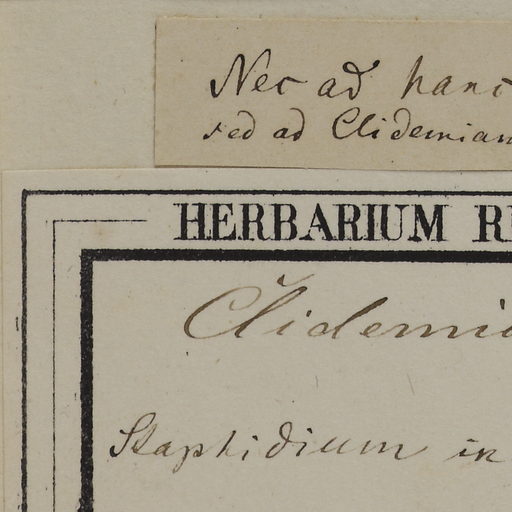 Nec ad hanc
sed ad Clidemiam
HERBARIUM R
Clidemia
Staphidium in